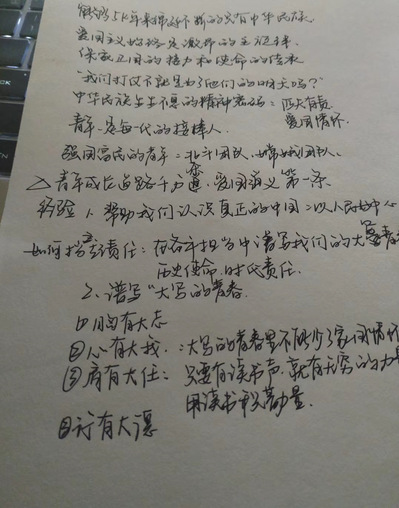 解读5千年来绵延不断的只有中华民族
爱国主义始终是激昂的主旋律
保家卫国的接力和使命的传承
"我们打仗不就是为了他们的明天吗?"
中华民族生生不息的精神密码:匹夫有责
爱国情怀.
青年是每一代的接棒人.
强国富民的青年:北斗团队、嫦娥团队.
△青年成长道路千万条,爱国主义第一条
经验 1、帮助我们认识真正的中国:以人民为中心
如何担责任:在各年担当中谱写我们的大写青春
历史使命,时代责任.
2、谱写"大写的青春.
①胸有大志
②心有大我.:大写的青春里不能少了家国情怀
③肩有大任:只要有读书声,就有无穷的力量
用读书声 量.
行有大德